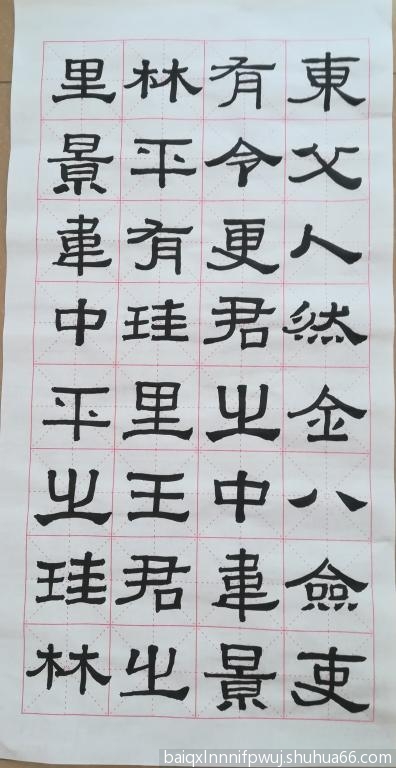 東父人然金八僉吏
有令更君之中景
林平有珪里王君之
里景中平之珪林
baiqxlnnnifpwuj.shuhua66.com